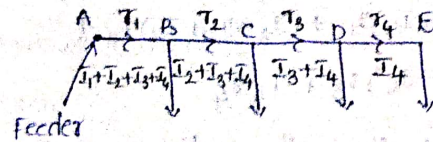 A r₁ B r₂ C r₃ D r₄ E
I₁+I₂+I₃+I₄ I₂+I₃+I₄ I₃+I₄ I₄
Feeder